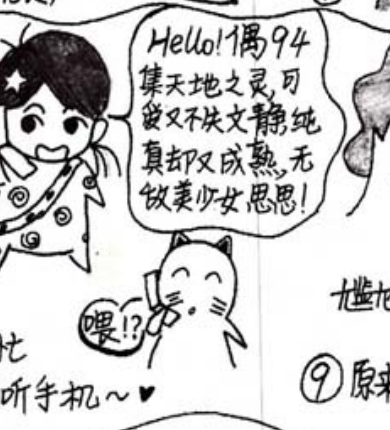 Hello!偶94
集天地之灵,可
爱又不失文静,纯
真却又成熟,无
敌美少女思思!
喂!?
忙
听手机~♥
尴尬
⑨原来